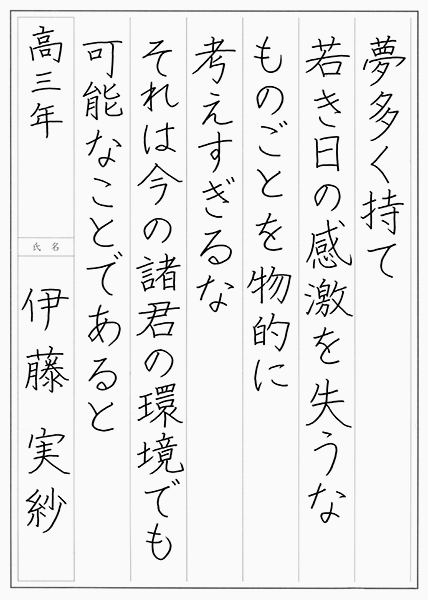 夢多く持て
若き日の感激を失うな
ものごとを物的に
考えすぎるな
それは今の諸君の環境でも
可能なことであると
高三年
氏名
伊藤 実紗